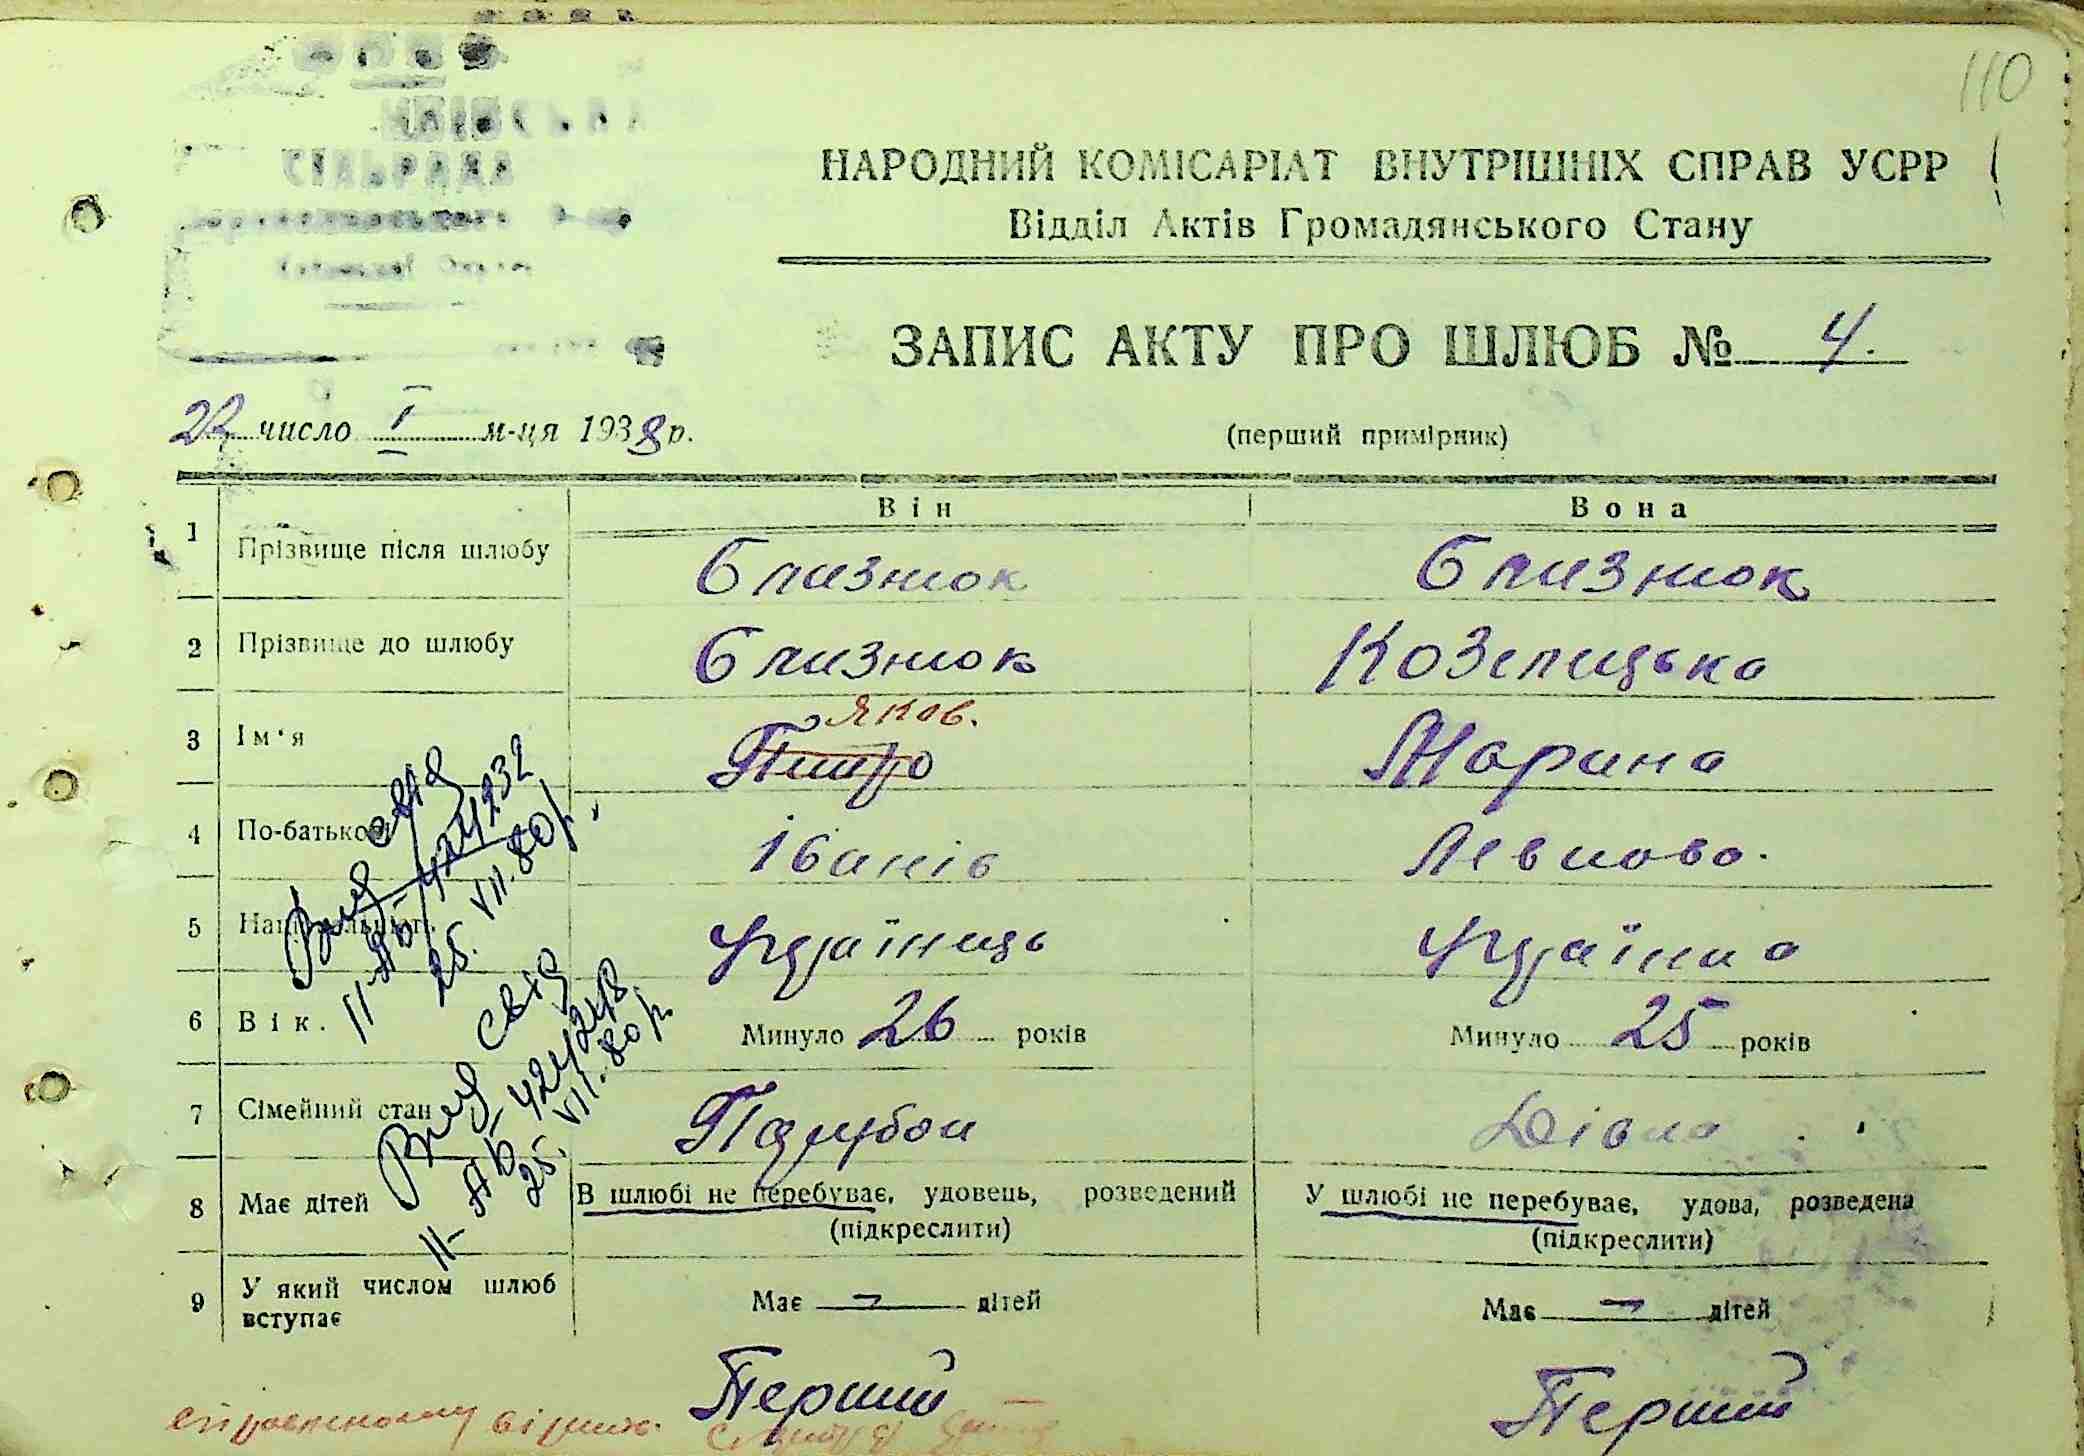 110
СІЛЬРАДА
НАРОДНИЙ КОМІСАРІАТ ВНУТРІШНІХ СПРАВ УСРР
Відділ Актів Громадянського Стану
ЗАПИС АКТУ ПРО ШЛЮБ № 4.
22 число I м-ця 1938 р.
(перший примірник)
Він Вона
1 Прізвище після шлюбу Близнюк Близнюк
2 Прізвище до шлюбу Близнюк Козелицька
Яков.
3 Ім'я Питро Марина
4 По-батькові Іванів Левкова.
5 Національність Українець Українка
6 Вік. Минуло 26 років Минуло 25 років
7 Сімейний стан Парубок Дівка
8 Має дітей В шлюбі не перебуває, удовець, розведений У шлюбі не перебуває, удова, розведена
(підкреслити) (підкреслити)
9 У який числом шлюб вступає Має — дітей Має — дітей
Перший Перший
II-АБ 424232
25. VII. 80р.
II-АБ 424248
25. VII. 80р.